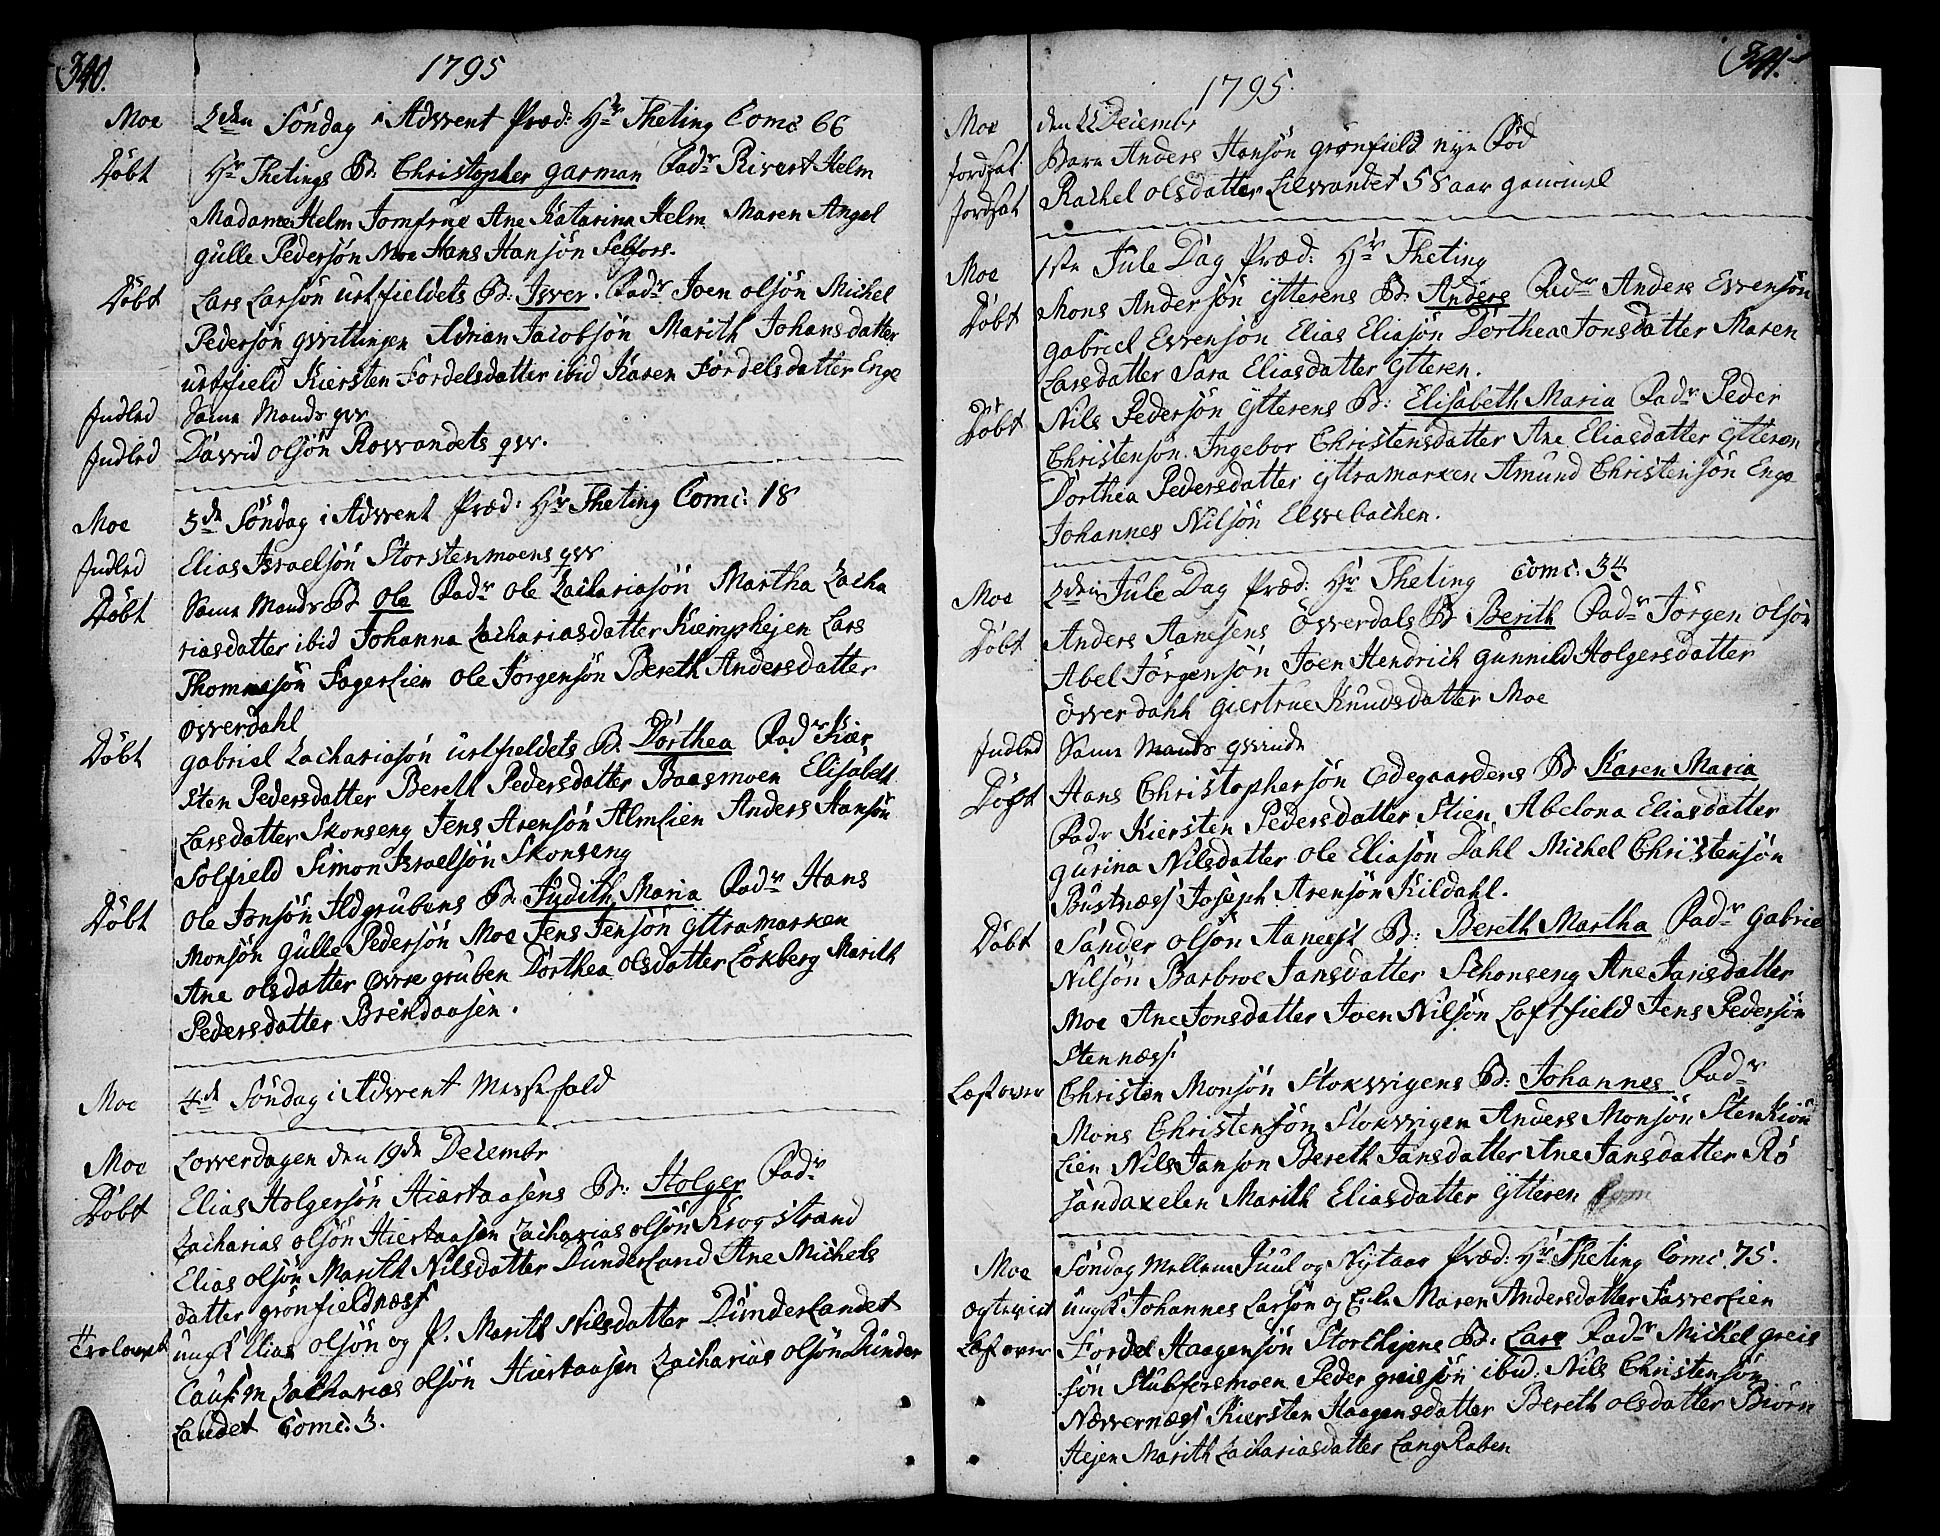 340.
1795
Moe 2den Söndag i Advent Præd: Hr Theting Comc 66
Döbt Hr Thetings B: Christopher Garman Fadr Rivert Helm
Madame Helm Jomfrue Ane Katarina Helm Maren Angel
Gulle Pedersön Moe Hans Hansön Selfors.
Döbt Lars Larsön urtfieldets B: Isver. Fadr Joen olsön Michel
Pedersön qvittingen Adrian Jacobsön Marith Johansdatter
urtfield Kiersten Fordelsdatter ibid Karen Fordelsdatter Enge
Indled Samme Mands qvr
Indled David olsön Rovandets qvr.
Moe 3de Söndag i Advent Præd: Hr Theting Comc: 18
Indled Elias Israelsön Storstenmoens qvr
Döbt Samme Mands B ole Fadr ole Zachariasön Martha Zacha
riasdatter ibid Johanna Zachariasdatter Kiemphejen Lars
Thommesön Fagerlien ole Jörgensön Bereth Andersdatter
overdahl
Döbt Gabriel Zachariasön urtfieldets B. Dorthea Fadr Kier
sten Pedersdatter Bereth Pedersdatter Baasmoen Elisabeth
Larsdatter Skonseng Jens Arensön Almlien Anders Hansön
Solfield Simon Israelsön Skonseng
Döbt ole Jonsön Ildgrubens B: Judith Maria Fadr Hans
Monsön Gulle Pedersön Moe Jens Jensön Yttramarken
Ane olsdatter Övregruben Dorthea olsdatter Lökberg Marith
Pedersdatter Brendaasen.
Moe 4de Söndag i Advent Messefald
Moe Loverdagen den 19de Decembr
Döbt Elias Holgersön Hiertaasens B: Holger Fadr
Zacharias olsön Hiertaasen Zacharias olsön Krogstrand
Elias olsön Marith Nilsdatter Dunderland Ane Michels
datter grönfieldnæss
Trolovet ungk Elias olsön og P. Marith Nilsdatter Dunderlandet
Caut: M Zacharias olsön Hiertaasen Zacharias olsön Dunder
Landet Comc: 3.
341.
1795.
Moe den 22 Decembr
Jordsat Barn Anders Hansön grönfield nye Föd
Jordsat Rachel olsdatter Lilvandet 58 aar gammel
Moe 1ste Jule Dag Præd: Hr Theting
Döbt Mons Andersön Ytterens B: Anders Fadr Anders Evensön
Gabriel Evensön Elias Eliasön Dorthea Jonsdatter Maren
Larsdatter Sara Eliasdatter Ytteren.
Döbt Nils Pedersön Ytterens B: Elisabeth Maria Fadr Peder
Christensön Ingebor Christensdatter Ane Eliasdatter Ytteren
Dorthea Pedersdatter Yttramarken Amund Christensön Enge
Johannes Nilsön Elvebacken.
Moe 2den Jule Dag Præd: Hr Theting Comc: 34
Döbt Anders Aanesens Överdals B: Berith Fadr Jörgen olsön
Abel Jörgensön Joen Hendrich Gunnild Holgersdatter
Överdahl Giertrue Knudsdatter Moe
Indled Samme Mands qvinde
Döbt Hans Christophersön Ödegaardens B Karen Maria
Fadr Kiersten Pedersdatter Stien Abelona Eliasdatter
Gurina Nilsdatter ole Eliasön Dahl Michel Christensön
Bustnæss Joseph Arensön Kildahl.
Döbt Sander olsön Aanest B: Bereth Martha Fadr Gabriel
Nilsön Barbroe Jansdatter Schonseng Ane Jansdatter
Moe Ane Jonsdatter Joen Nilsön Loftfield Jens Pedersön
Stennæss
Læst over Christen Monsön Stokvigens B: Johannes Fadr
Mons Christensön Stokvigen Anders Monsön Stenkion
Lien Nils Janson Bereth Jansdatter Ane Jansdatter Rö
sandaxelen Marith Eliasdatter Ytteren
Moe Söndag Mellem Juul og Nytaar Præd: Hr Theting Comc. 75.
Ægteviet ungk Johannes Larsön og Maren Andersdatter Faverlien
Læst over Fordel Haagensön Storhejens B: Lars Fadr Michel Greis
sön Stubforsmoen Peder Greissön ibid: Nils Christensön
Nævernæss Kiersten Haagensdatter Bereth olsdatter Biörn
Hejen Marith Zachariasdatter Lang Raben